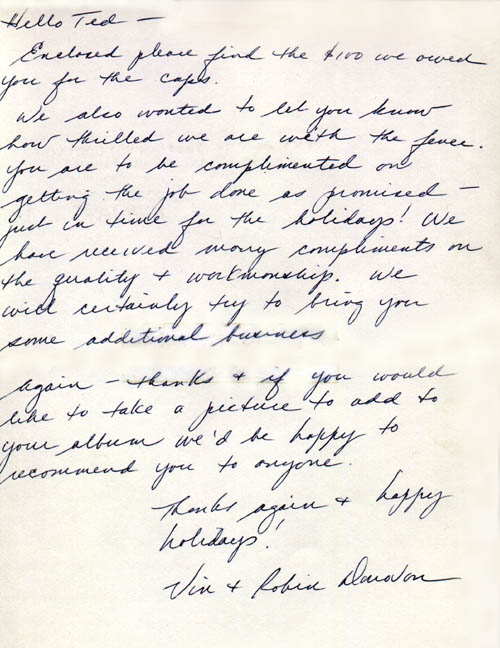 Hello Ted —
Enclosed please find the $100 we owed
you for the caps.
We also wanted to let you know
how thrilled we are with the fence.
You are to be complimented on
getting the job done as promised —
just in time for the holidays! We
have received many compliments on
the quality + workmanship. We
will certainly try to bring you
some additional business
Again — thanks + if you would
like to take a picture to add to
your album we'd be happy to
recommend you to anyone.
Thanks again + happy
holidays!
Vin + Robin Donovon